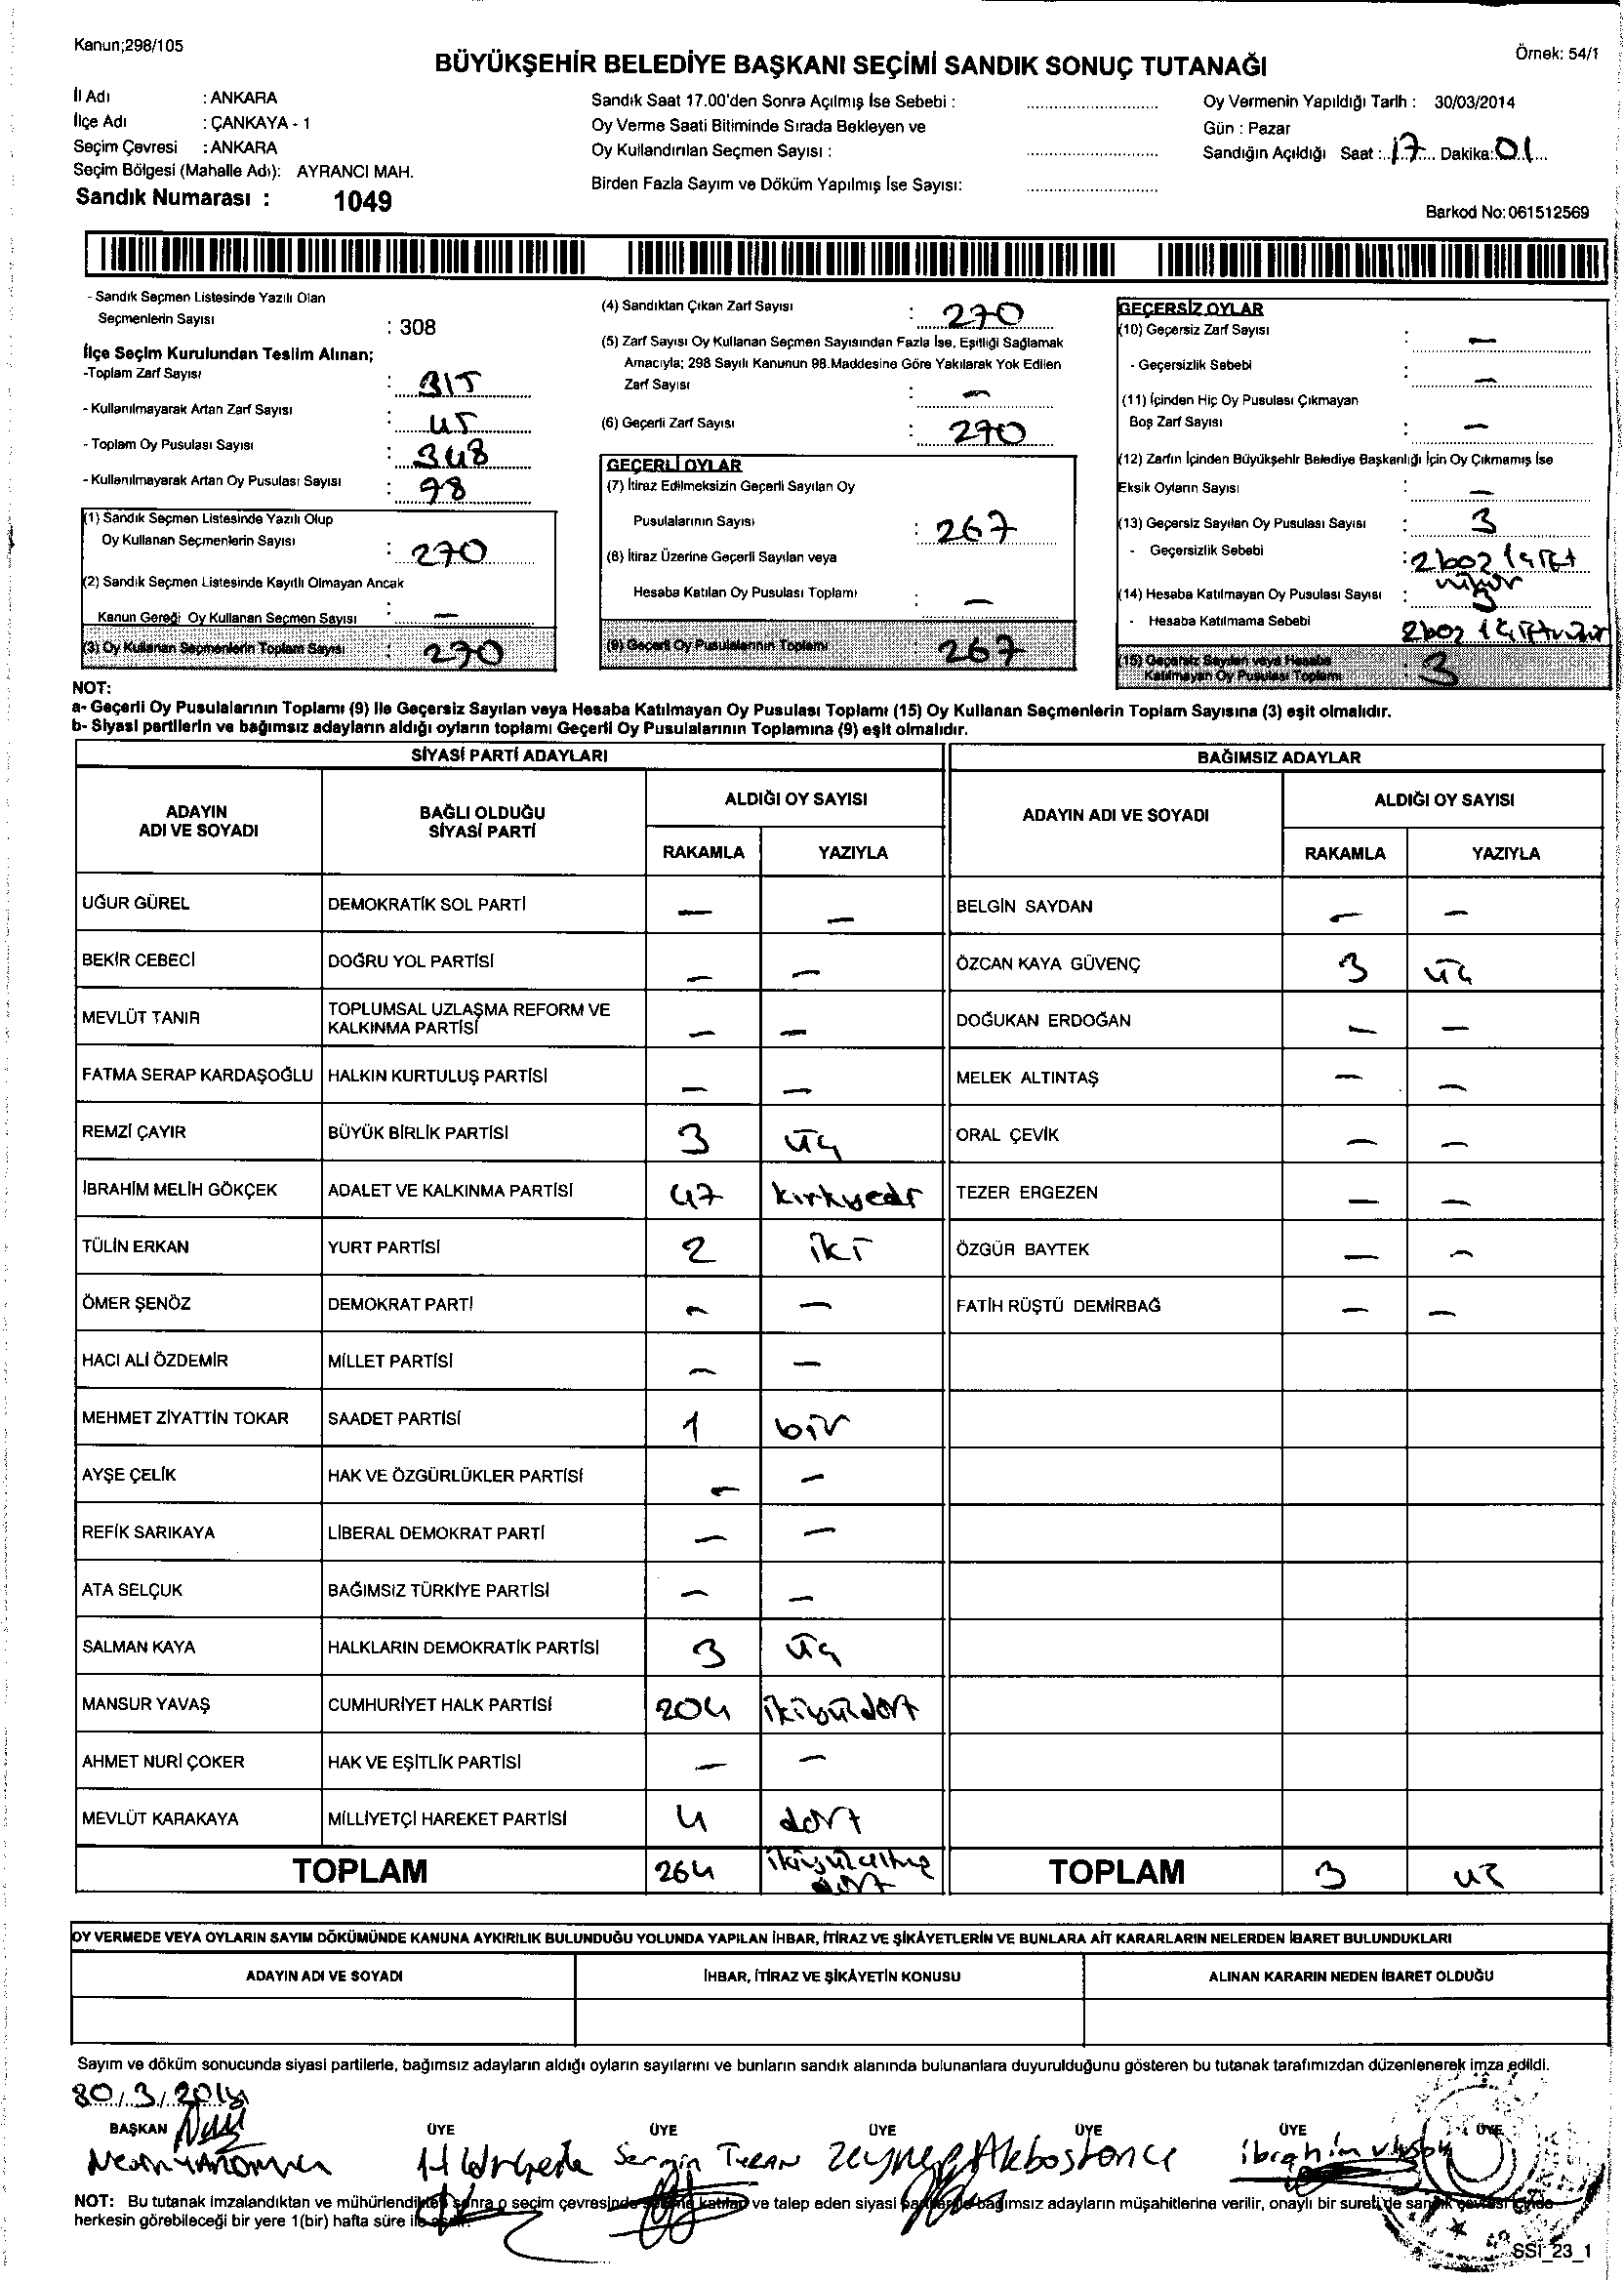 Kanun;298/105
BÜYÜKŞEHİR BELEDİYE BAŞKANI SEÇİMİ SANDIK SONUÇ TUTANAĞI
Örnek: 54/1
İl Adı : ANKARA
İlçe Adı : ÇANKAYA - 1
Seçim Çevresi : ANKARA
Seçim Bölgesi (Mahalle Adı): AYRANCI MAH.
Sandık Numarası : 1049
Sandık Saat 17.00'den Sonra Açılmış İse Sebebi :
Oy Verme Saati Bitiminde Sırada Bekleyen ve
Oy Kullandırılan Seçmen Sayısı :
Birden Fazla Sayım ve Döküm Yapılmış İse Sayısı:
Oy Vermenin Yapıldığı Tarih : 30/03/2014
Gün : Pazar
Sandığın Açıldığı Saat : 17 Dakika: 01
Barkod No: 061512569
- Sandık Seçmen Listesinde Yazılı Olan
Seçmenlerin Sayısı : 308
İlçe Seçim Kurulundan Teslim Alınan;
-Toplam Zarf Sayısı : 315
- Kullanılmayarak Artan Zarf Sayısı : 45
- Toplam Oy Pusulası Sayısı : 348
- Kullanılmayarak Artan Oy Pusulası Sayısı : 78
(1) Sandık Seçmen Listesinde Yazılı Olup
Oy Kullanan Seçmenlerin Sayısı : 270
(2) Sandık Seçmen Listesinde Kayıtlı Olmayan Ancak
Kanun Gereği Oy Kullanan Seçmen Sayısı : —
(3) Oy Kullanan Seçmenlerin Toplam Sayısı : 270
(4) Sandıktan Çıkan Zarf Sayısı : 270
(5) Zarf Sayısı Oy Kullanan Seçmen Sayısından Fazla İse, Eşitliği Sağlamak
Amacıyla; 298 Sayılı Kanunun 98.Maddesine Göre Yakılarak Yok Edilen
Zarf Sayısı : —
(6) Geçerli Zarf Sayısı : 270
GEÇERLİ OYLAR
(7) İtiraz Edilmeksizin Geçerli Sayılan Oy
Pusulalarının Sayısı : 267
(8) İtiraz Üzerine Geçerli Sayılan veya
Hesaba Katılan Oy Pusulası Toplamı : —
(9) Geçerli Oy Pusulalarının Toplamı : 267
GEÇERSİZ OYLAR
(10) Geçersiz Zarf Sayısı : —
- Geçersizlik Sebebi : —
(11) İçinden Hiç Oy Pusulası Çıkmayan
Boş Zarf Sayısı : —
(12) Zarfın İçinden Büyükşehir Belediye Başkanlığı İçin Oy Çıkmamış İse
Eksik Oyların Sayısı : —
(13) Geçersiz Sayılan Oy Pusulası Sayısı : 3
- Geçersizlik Sebebi : 2 boz 1 çift
mühür
(14) Hesaba Katılmayan Oy Pusulası Sayısı : 3
- Hesaba Katılmama Sebebi 2 boz 1 çift mühür
(15) Geçersiz Sayılan veya Hesaba
Katılmayan Oy Pusulası Toplamı : 3
NOT:
a- Geçerli Oy Pusulalarının Toplamı (9) ile Geçersiz Sayılan veya Hesaba Katılmayan Oy Pusulası Toplamı (15) Oy Kullanan Seçmenlerin Toplam Sayısına (3) eşit olmalıdır.
b- Siyasi partilerin ve bağımsız adayların aldığı oyların toplamı Geçerli Oy Pusulalarının Toplamına (9) eşit olmalıdır.
SİYASİ PARTİ ADAYLARI
ADAYIN ADI VE SOYADI BAĞLI OLDUĞU SİYASİ PARTİ ALDIĞI OY SAYISI
RAKAMLA YAZIYLA
UĞUR GÜREL DEMOKRATİK SOL PARTİ — —
BEKİR CEBECİ DOĞRU YOL PARTİSİ — —
MEVLÜT TANIR TOPLUMSAL UZLAŞMA REFORM VE KALKINMA PARTİSİ — —
FATMA SERAP KARDAŞOĞLU HALKIN KURTULUŞ PARTİSİ — —
REMZİ ÇAYIR BÜYÜK BİRLİK PARTİSİ 3 üç
İBRAHİM MELİH GÖKÇEK ADALET VE KALKINMA PARTİSİ 47 kırkyedi
TÜLİN ERKAN YURT PARTİSİ 2 iki
ÖMER ŞENÖZ DEMOKRAT PARTİ — —
HACI ALİ ÖZDEMİR MİLLET PARTİSİ — —
MEHMET ZİYATTİN TOKAR SAADET PARTİSİ 1 bir
AYŞE ÇELİK HAK VE ÖZGÜRLÜKLER PARTİSİ — —
REFİK SARIKAYA LİBERAL DEMOKRAT PARTİ — —
ATA SELÇUK BAĞIMSIZ TÜRKİYE PARTİSİ — —
SALMAN KAYA HALKLARIN DEMOKRATİK PARTİSİ 3 üç
MANSUR YAVAŞ CUMHURİYET HALK PARTİSİ 204 ikiyüzdört
AHMET NURİ ÇOKER HAK VE EŞİTLİK PARTİSİ — —
MEVLÜT KARAKAYA MİLLİYETÇİ HAREKET PARTİSİ 4 dört
TOPLAM 264 ikiyüzaltmış dört
BAĞIMSIZ ADAYLAR
ADAYIN ADI VE SOYADI ALDIĞI OY SAYISI
RAKAMLA YAZIYLA
BELGİN SAYDAN — —
ÖZCAN KAYA GÜVENÇ 3 üç
DOĞUKAN ERDOĞAN — —
MELEK ALTINTAŞ — —
ORAL ÇEVİK — —
TEZER ERGEZEN — —
ÖZGÜR BAYTEK — —
FATİH RÜŞTÜ DEMİRBAĞ — —
TOPLAM 3 üç
OY VERMEDE VEYA OYLARIN SAYIM DÖKÜMÜNDE KANUNA AYKIRILIK BULUNDUĞU YOLUNDA YAPILAN İHBAR, İTİRAZ VE ŞİKÂYETLERİN VE BUNLARA AİT KARARLARIN NELERDEN İBARET BULUNDUKLARI
ADAYIN ADI VE SOYADI İHBAR, İTİRAZ VE ŞİKÂYETİN KONUSU ALINAN KARARIN NEDEN İBARET OLDUĞU
Sayım ve döküm sonucunda siyasi partilerle, bağımsız adayların aldığı oyların sayılarını ve bunların sandık alanında bulunanlara duyurulduğunu gösteren bu tutanak tarafımızdan düzenlenerek imza edildi.
30/3/2014
BAŞKAN ÜYE ÜYE ÜYE ÜYE ÜYE ÜYE
Sergin Turan Zeynep Akbostancı ibrahim
NOT: Bu tutanak imzalandıktan ve mühürlendikten sonra o seçim çevresinde seçime katılan ve talep eden siyasi partilerle bağımsız adayların müşahitlerine verilir, onaylı bir sureti de sandık çevresi içinde
herkesin görebileceği bir yere 1(bir) hafta süre ile asılır.
SSI_23_1